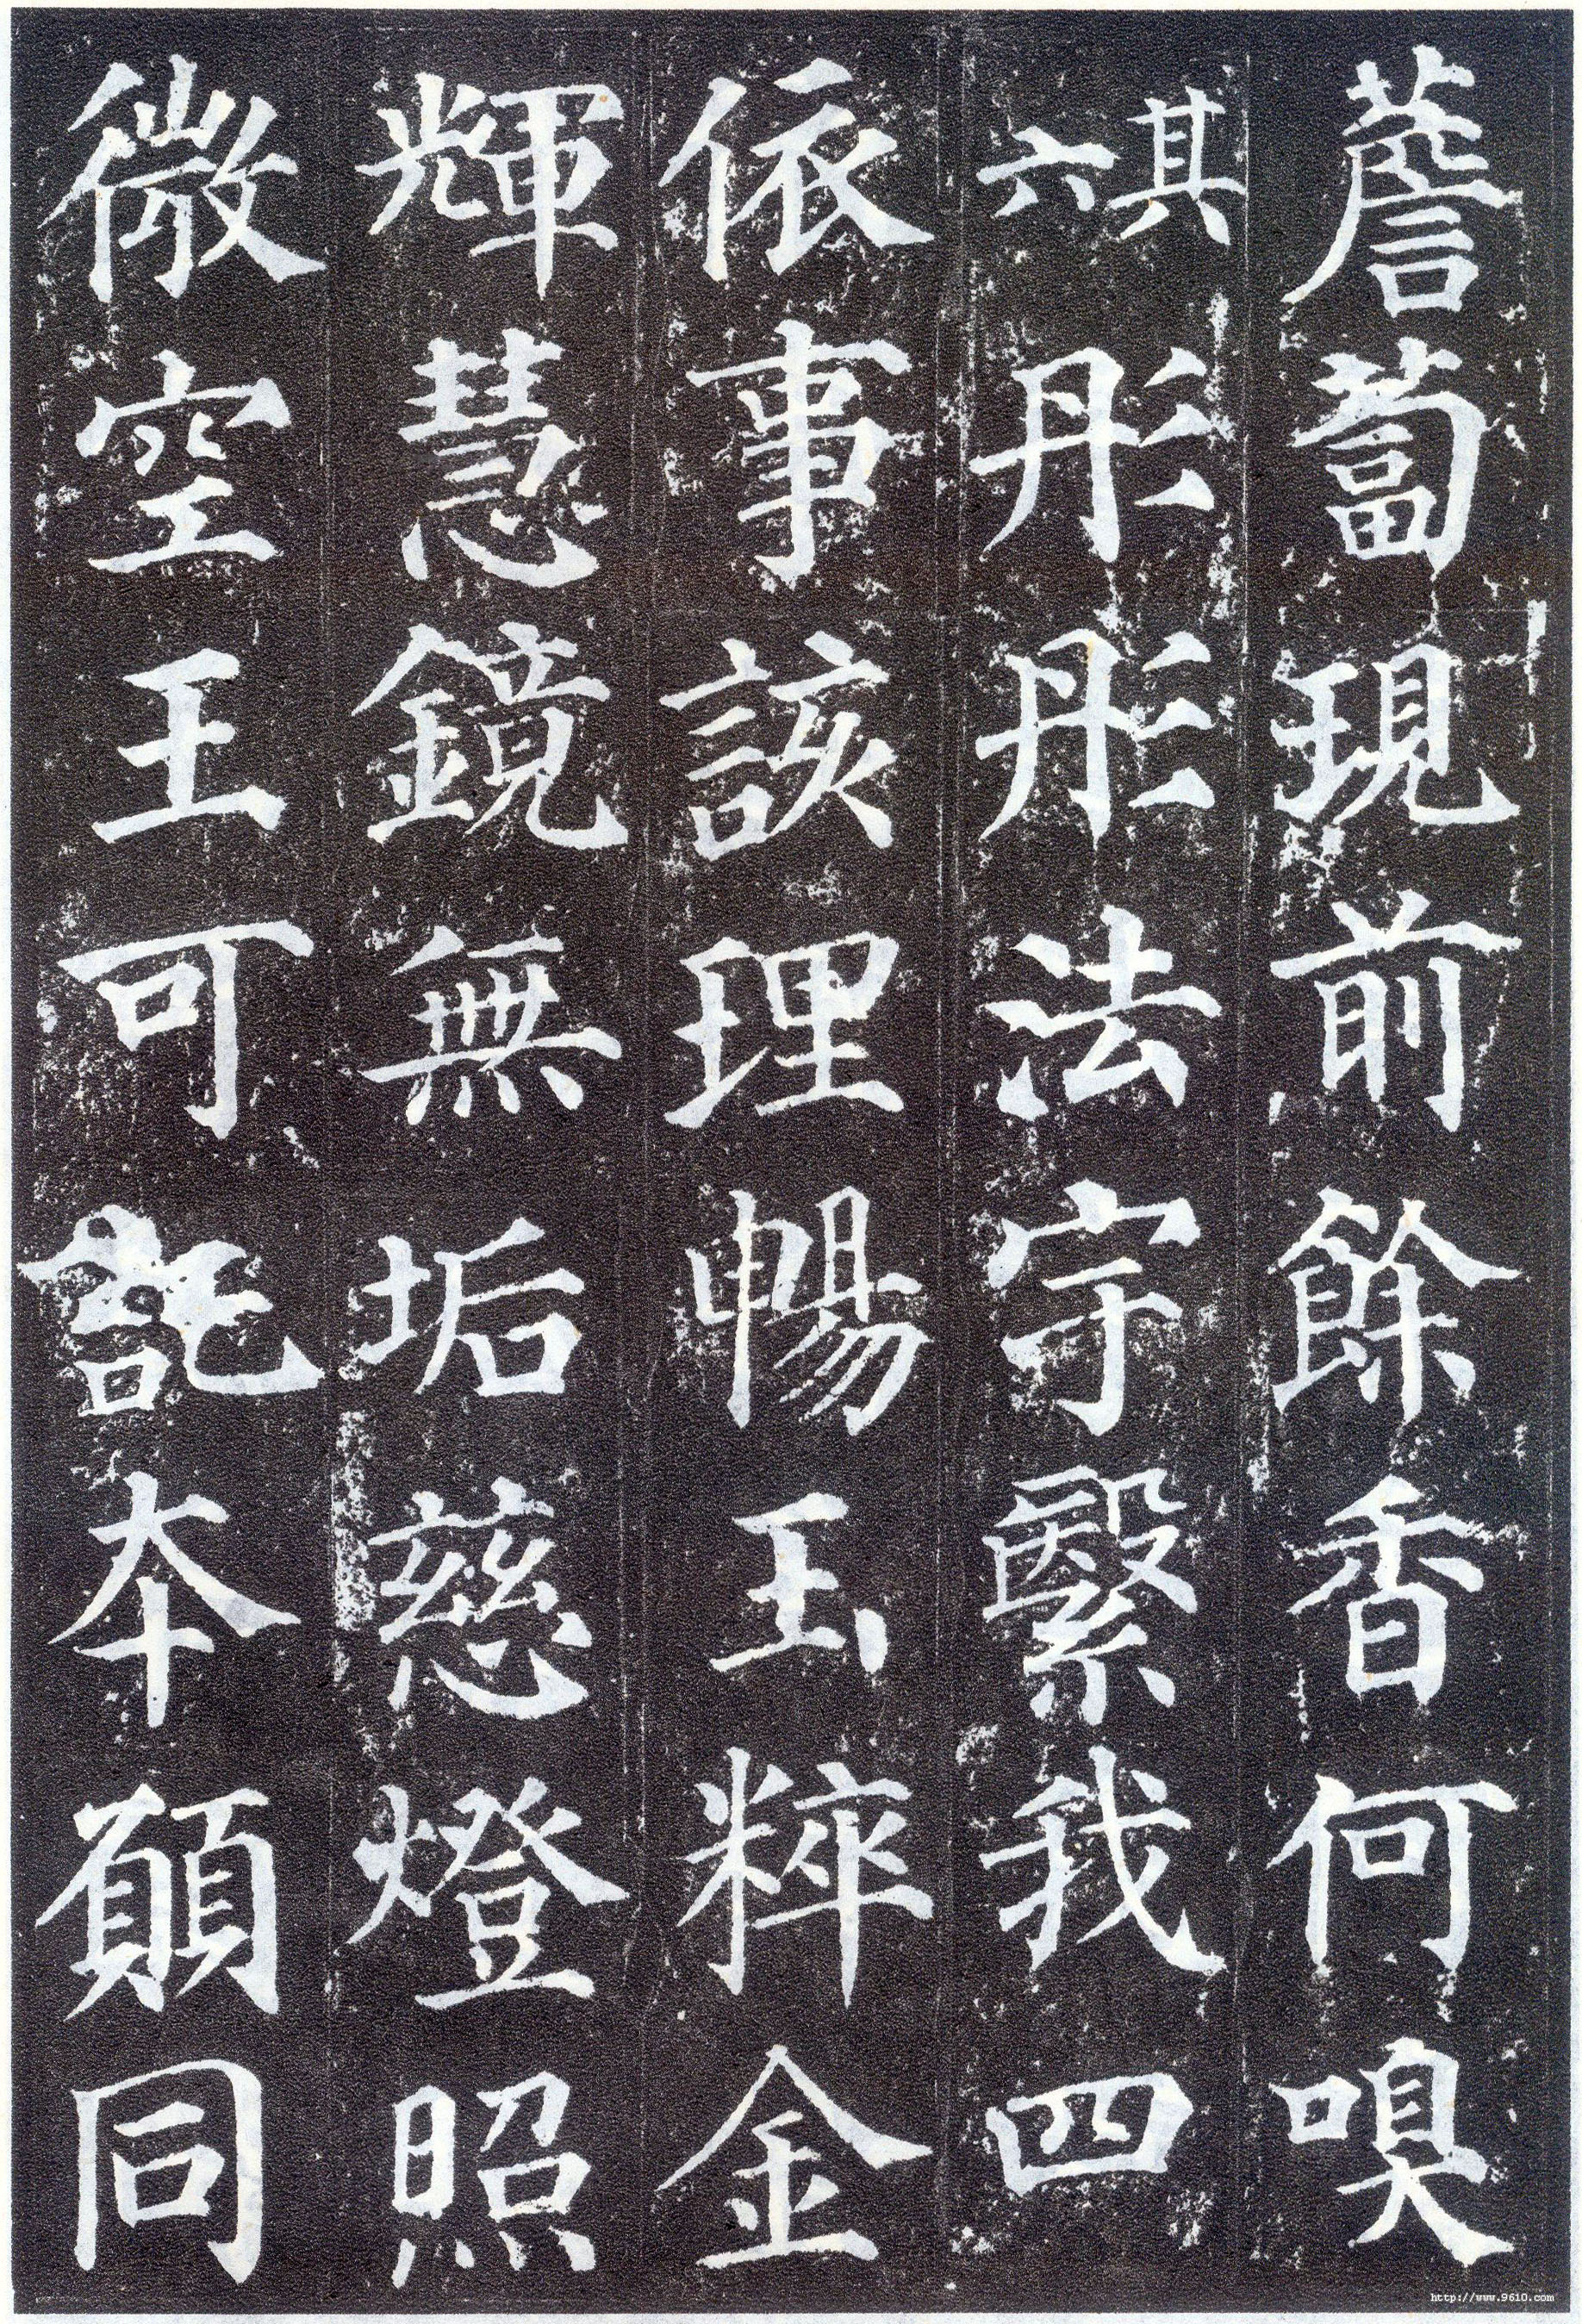 薝蔔現前餘香何嗅
其六彤彤法宇繄我四
依事該理暢玉粹金
輝慧鏡無垢慈燈照
微空王可託本願同
http://www.9610.com